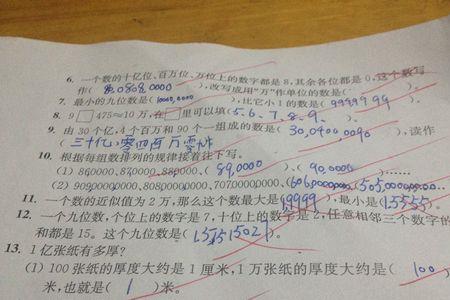 6. 一个数的十亿位、百万位、万位上的数字都是8,其余各位都是0,这个数写
作( ),改写成用"万"作单位的数是( )。
7. 最小的九位数是( ),比它小1的数是( )。
8. 9□475≈10万,在□里可以填(5、6、7、8、9、)。
9. 由30个亿,4个百万和90个一组成的数是( ),读作
( )
10. 根据每组数排列的规律接着往下写。
(1) 860000、870000、880000、(89,0000)、(90,0000)……
(2) 9090000000、8080000000、7070000000、( )、( )
11. 一个数的近似值为2万,那么这个数最大是( ),最小是( )。
12. 一个九位数,个位上的数字是7,十位上的数字是2,任意相邻三个数字的
和都是15。这个九位数是( )
13. 1亿张纸有多厚?
(1) 100张纸的厚度大约是1厘米,1万张纸的厚度大约是( 100
米,也就是( 1 )米。